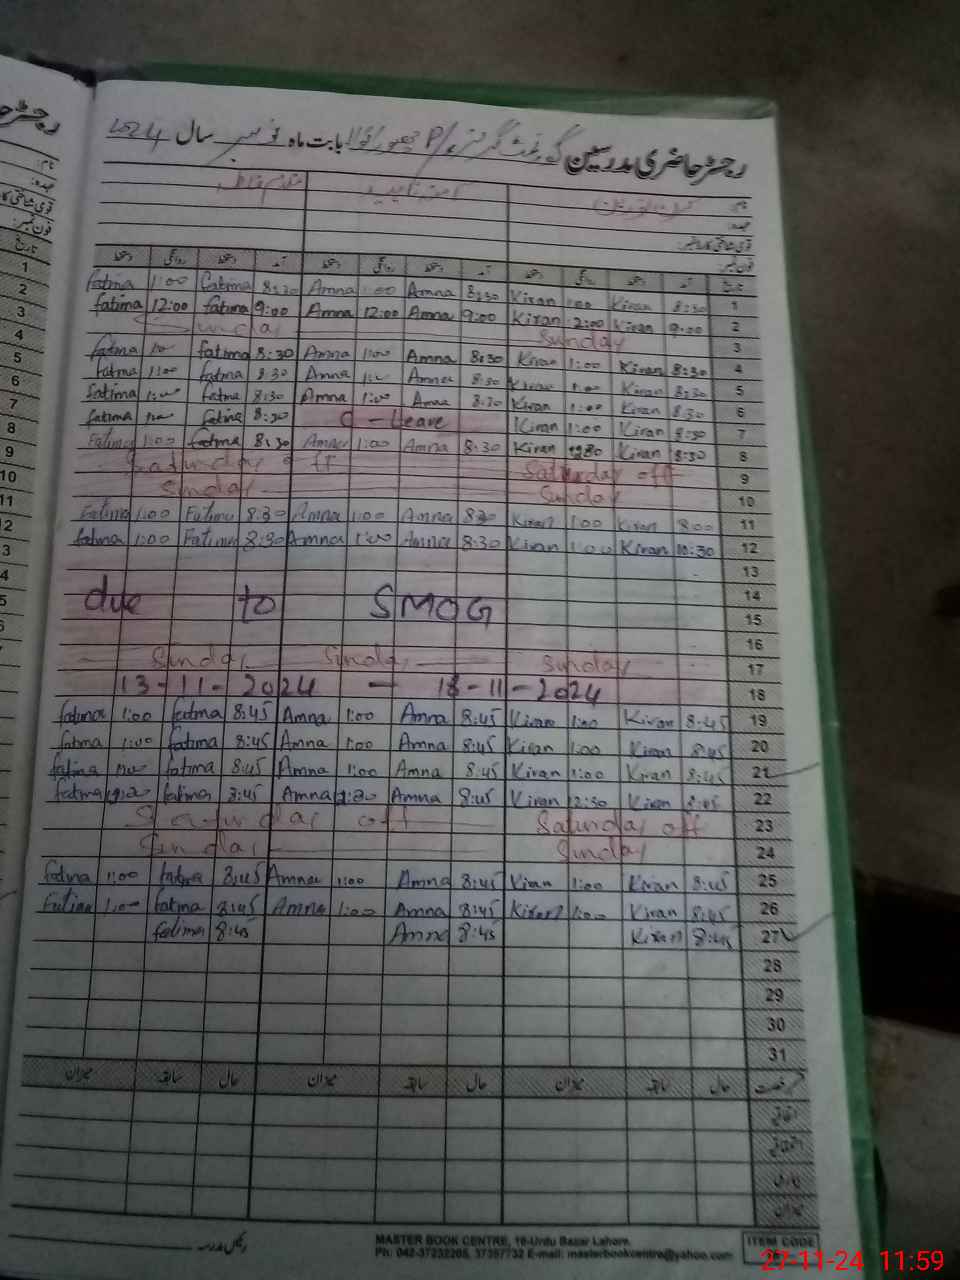 رجسٹر حاضری مدرسین گورنمنٹ گرلز P/ بابت ماہ نومبر سال 2024
نام:
عہدہ:
قومی شناختی کارڈ نمبر:
فون نمبر:
تاریخ آمد دستخط روانگی دستخط آمد دستخط روانگی دستخط آمد دستخط روانگی دستخط
fatima 1:00 fatima 8:30 Amna 1:00 Amna 8:30 Kiran 1:00 Kiran 8:30 1
fatima 12:00 fatima 9:00 Amna 12:00 Amna 9:00 Kiran 12:00 Kiran 9:00 2
Sunday Sunday 3
fatima fatima 8:30 Amna 1:00 Amna 8:30 Kiran 1:00 Kiran 8:30 4
fatima 1:00 fatma 8:30 Amna Amna 8:30 Kiran 1:00 Kiran 8:30 5
fatima 1:00 fatma 8:30 Amna 1:00 Amna 8:30 Kiran 1:00 Kiran 8:30 6
fatma fatima 8:30 C - Leave Kiran 1:00 Kiran 8:30 7
Fatima 1:00 fatma 8:30 Amna 1:00 Amna 8:30 Kiran Kiran 8:30 8
Saturday off Saturday off 9
Sunday Sunday 10
Fatima 1:00 Fatima 8:30 Amna 1:00 Amna 8:30 Kiran 1:00 Kiran 8:00 11
fatma 1:00 Fatima 8:30 Amna 1:00 Amna 8:30 Kiran 1:00 Kiran 10:30 12
13
due to SMOG 14
15
16
Sunday Sunday Sunday 17
13-11-2024 - 18-11-2024 18
fatima 1:00 fatma 8:45 Amna 1:00 Amna 8:45 Kiran 1:00 Kiran 8:45 19
fatma 1:00 fatma 8:45 Amna 1:00 Amna 8:45 Kiran 1:00 Kiran 8:45 20
fatima fatma 8:45 Amna 1:00 Amna 8:45 Kiran 1:00 Kiran 8:45 21
fatma fatima 8:45 Amna Amna 8:45 Kiran 12:30 Kiran 8:45 22
Saturday off Saturday off 23
Sunday Sunday 24
fatma 1:00 fatma 8:45 Amna 1:00 Amna 8:45 Kiran 1:00 Kiran 8:45 25
Fatima 1:00 fatma 8:45 Amna 1:00 Amna 8:45 Kiran 1:00 Kiran 8:45 26
fatima 8:45 Amna 8:45 Kiran 8:45 27
28
29
30
31
حال سابقہ میزان حال سابقہ میزان حال سابقہ میزان
اتفاقی
استحقاقی
بیماری
میزان
MASTER BOOK CENTRE, 16-Urdu Bazar Lahore.
Ph: 042-37232265, 37357732 E-mail: masterbookcentre@yahoo.com
ITEM CODE
27-11-24 11:59
1
2
3
4
5
6
7
8
9
10
11